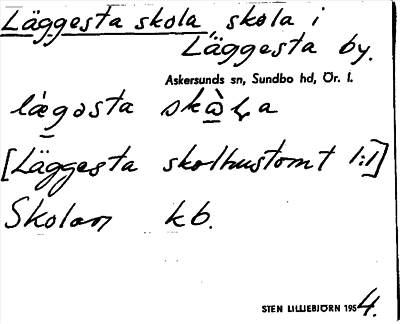 Läggesta skola skola i
Läggesta by.
Askersunds sn, Sundbo hd, Ör. l.
lægəsta
[Läggesta skolhustomt 1:1]
Skolan kb.
STEN LILLIEBJÖRN 1954.